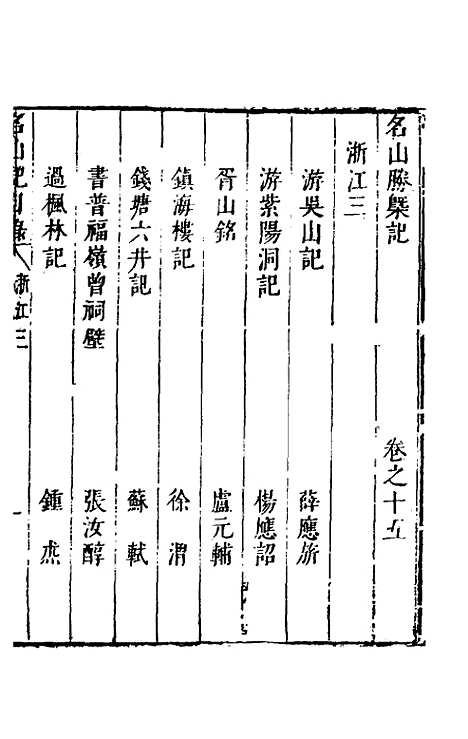 名山勝槩記　卷之十五
浙江三
游吳山記　薛應旂
游紫陽洞記　楊應詔
胥山銘　盧元輔
鎮海樓記　徐渭
錢塘六井記　蘇軾
書普福嶺曾祠壁　張汝醇
過楓林記　鍾𤇺
名山記目錄　浙江三　一